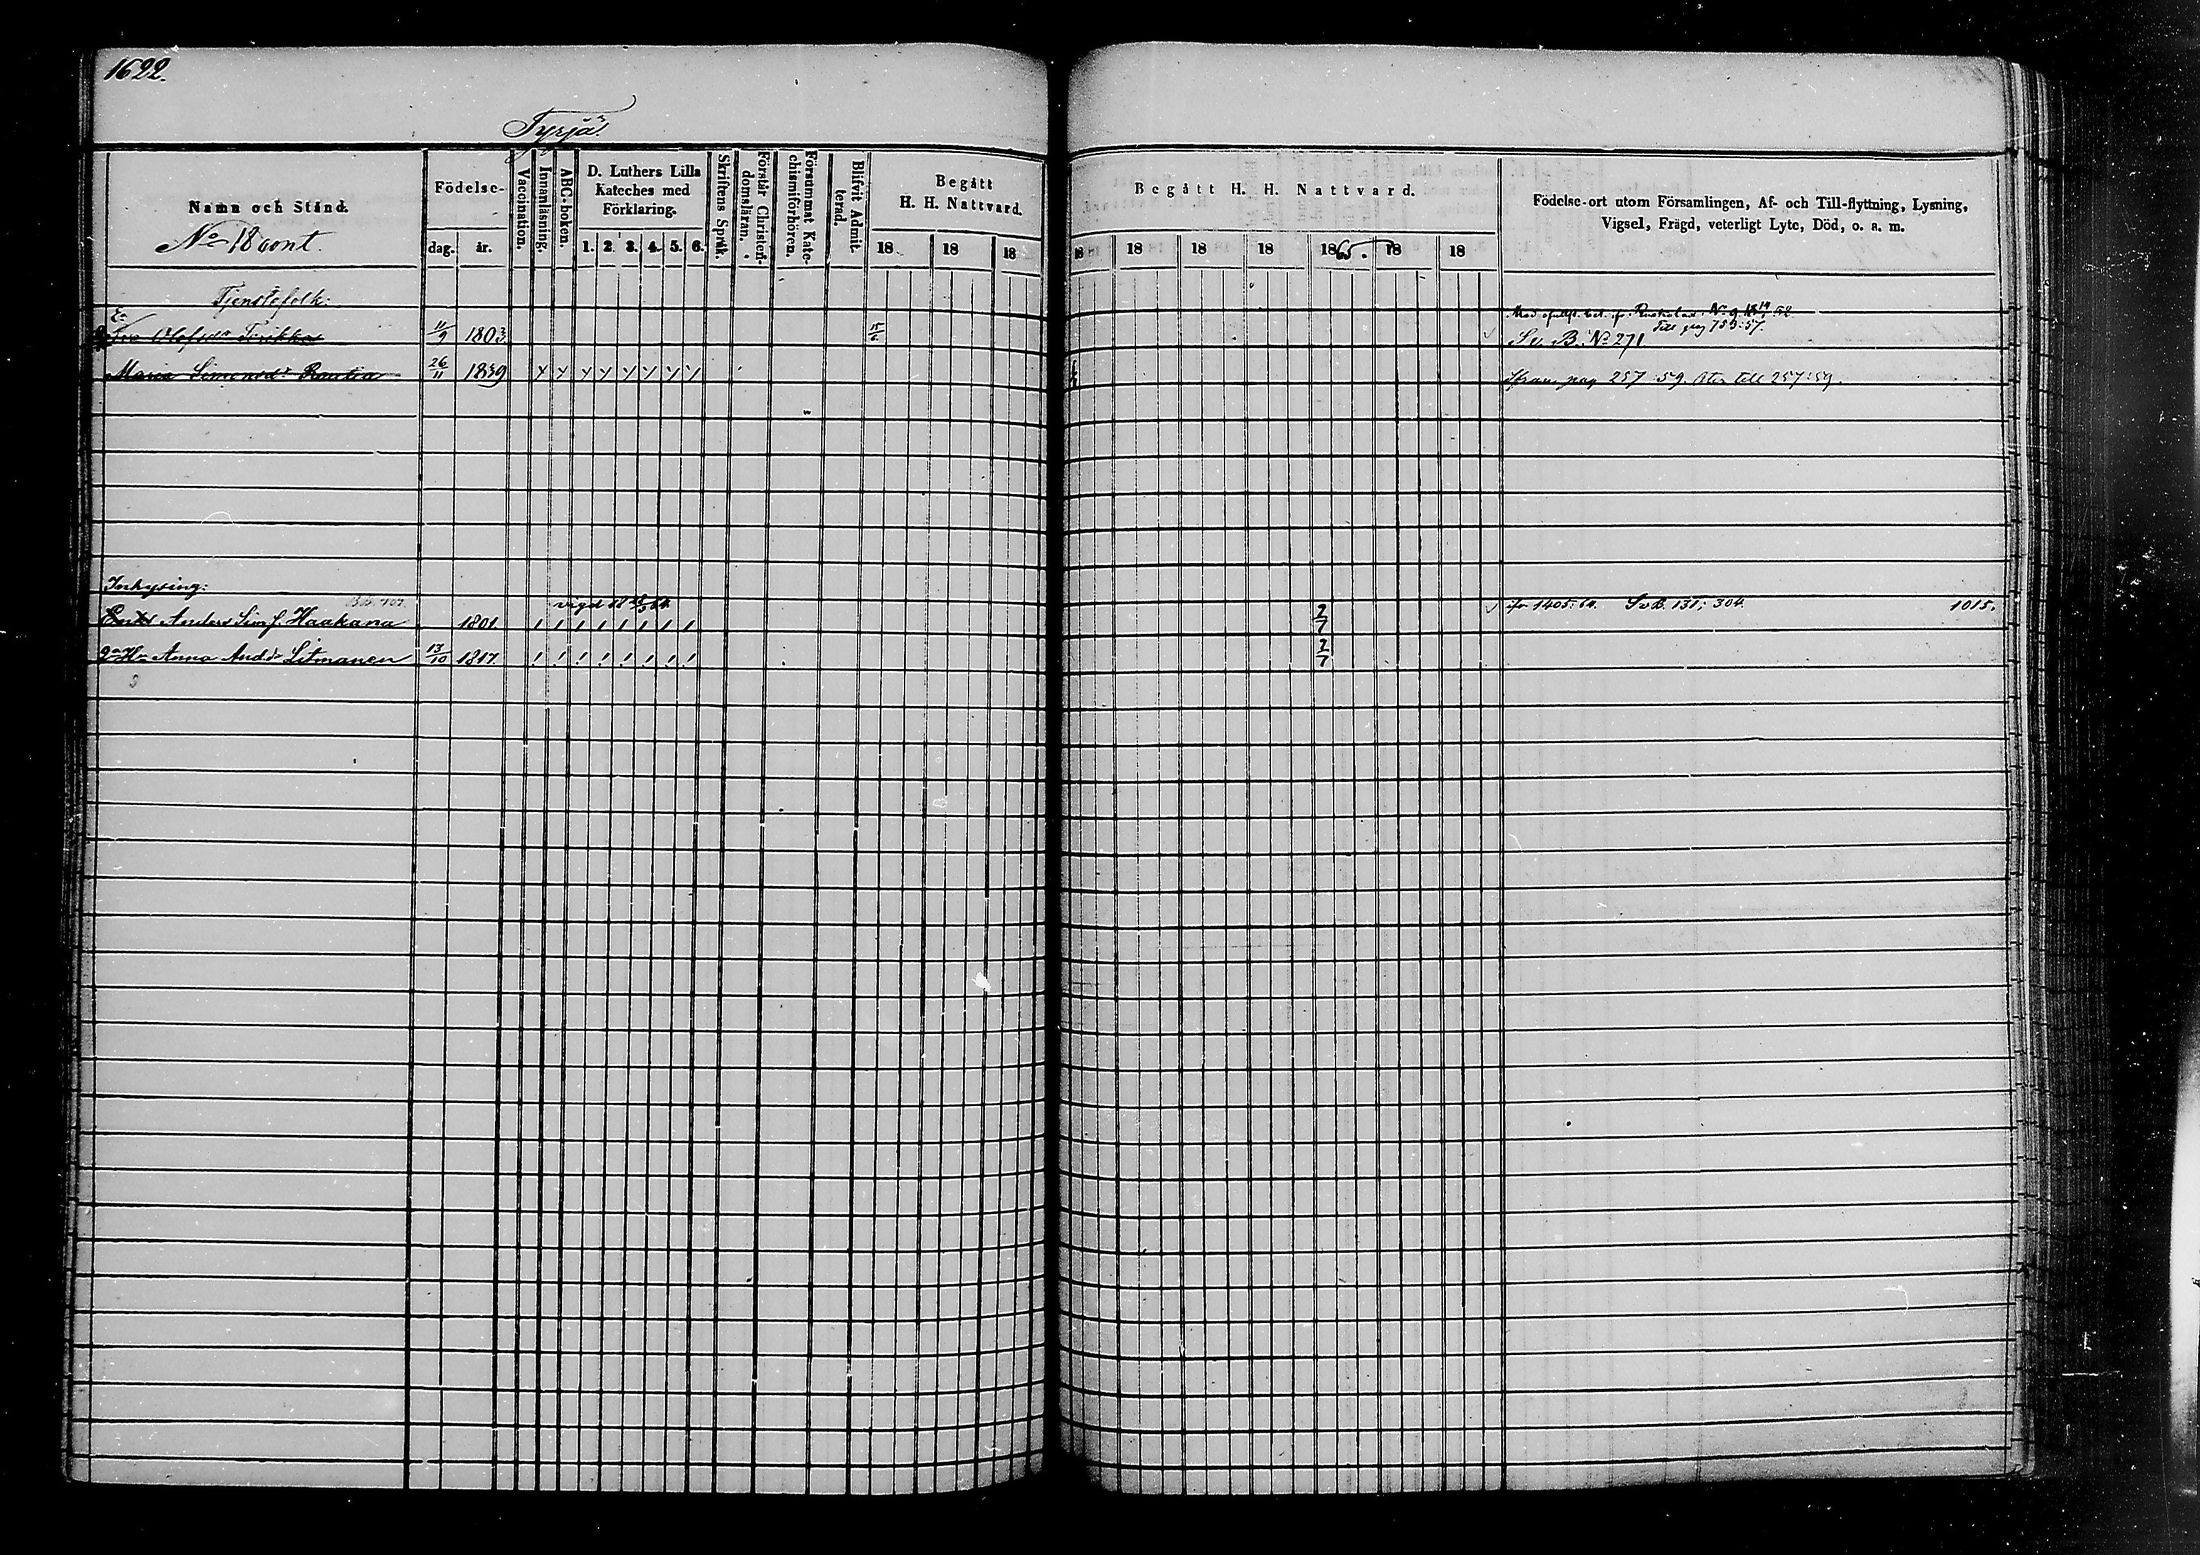 1622.
Tyrjä.
Namn och Stånd.
No 18 cont.
Födelse-
dag. år.
Vaccination.
Innanläsning.
ABC-boken.
D. Luthers Lilla Kateches med Förklaring.
1. 2. 3. 4. 5. 6.
Skriftens Språk.
Förstår Christendomsläran.
Försummat Katechismiförhören.
Blifvit Admitterad.
Begått H. H. Nattvard.
18 18 18
Begått H. H. Nattvard.
18 18 18 18 1865. 18 18
Födelse-ort utom Församlingen, Af- och Till-flyttning, Lysning,
Vigsel, Frägd, veterligt Lyte, Död, o. a. m.
Tjenstefolk:
Olofsdr 11/9 1803. 15/6
Till pag 753:57.
Sv. B. No 271
Maria Simonsdr Rautia 26/11 1839 ifrån pag 257:59. Åter till 257:59.
Inhysing:
vigd
Anders Sim. Haakana 1801 2/7 ifr 1405:64. SvB. 131; 304. 1015.
2a Hu Anna Andsdr Litmanen 13/10 1817. 2/7